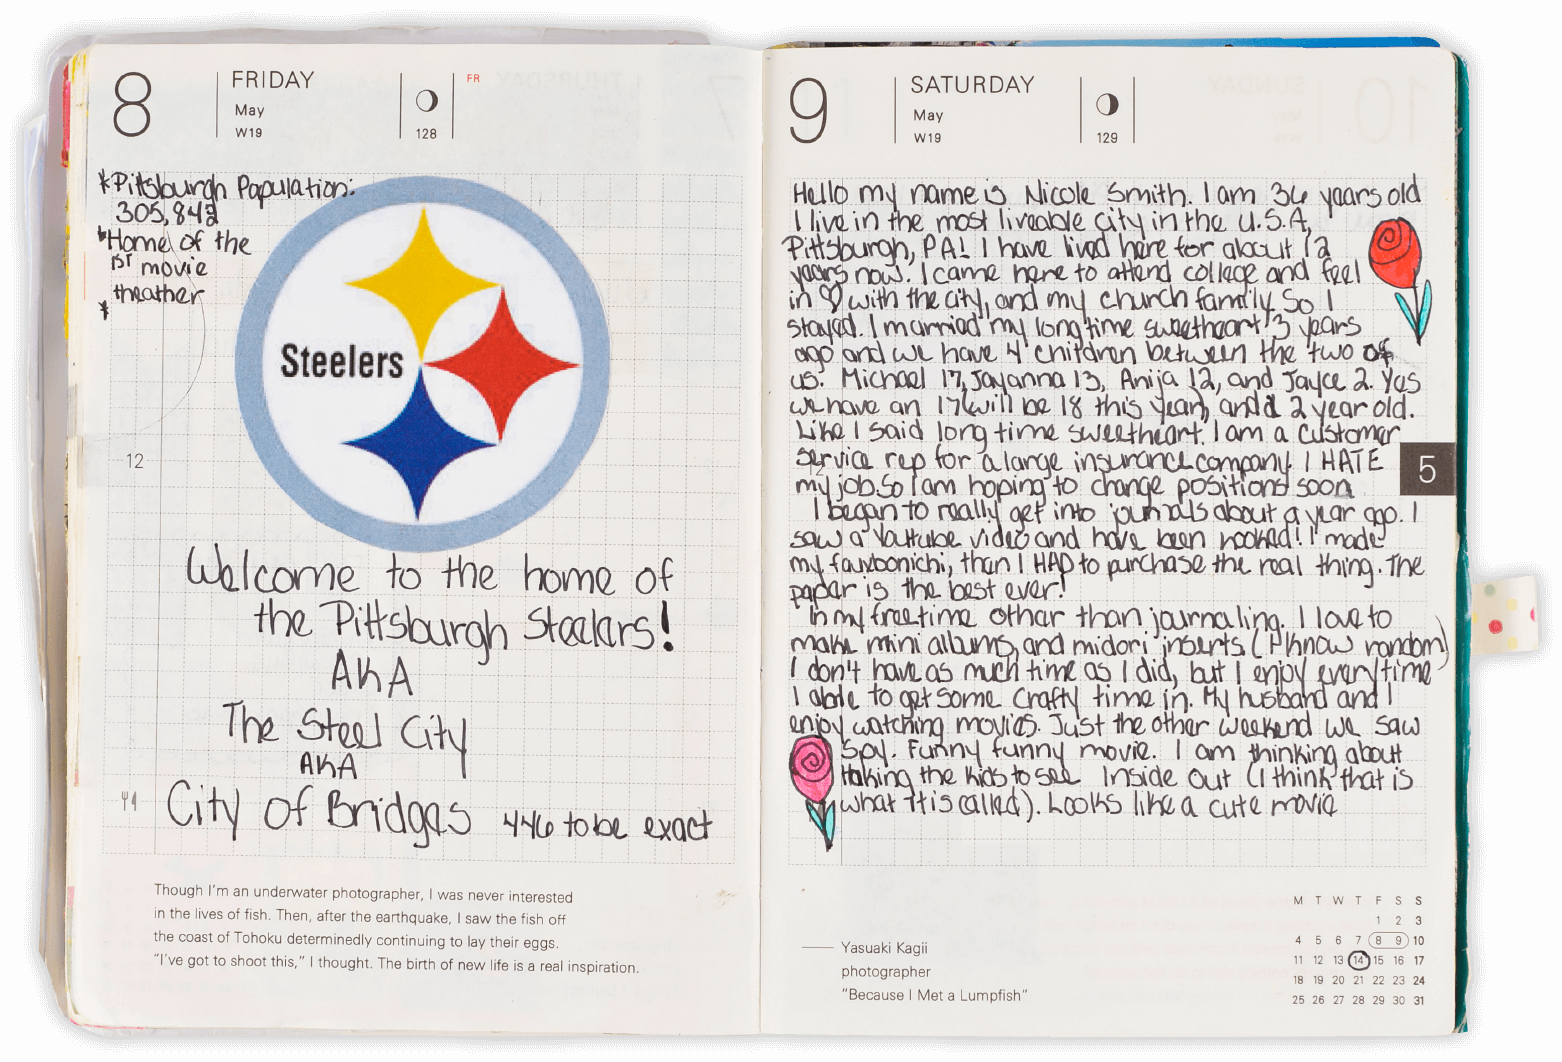 8
FRIDAY
May
W19
128
FR
*Pittsburgh Population:
305,842
*Home of the
1ST movie
theather
*
Steelers
12
Welcome to the home of
the Pittsburgh Steelers!
AKA
The Steel City
AKA
City of Bridges 446 to be exact
Though I'm an underwater photographer, I was never interested
in the lives of fish. Then, after the earthquake, I saw the fish off
the coast of Tohoku determinedly continuing to lay their eggs.
"I've got to shoot this," I thought. The birth of new life is a real inspiration.
9
SATURDAY
May
W19
129
Hello my name is Nicole Smith. I am 36 years old
I live in the most liveable city in the U.S.A,
Pittsburgh, PA! I have lived here for about 12
years now. I came here to attend college and feel
in ♡ with the city, and my church family. So I
stayed. I married my long time sweetheart 3 years
ago and we have 4 children between the two of
us. Michael 17, Jayanna 13, Anija 12, and Jayce 2. Yes
we have an 17 (will be 18 this year), and a 2 year old.
Like I said long time sweetheart. I am a customer
service rep for a large insurance company. I HATE
my job. So I am hoping to change positions soon
I began to really get into journals about a year ago. I
saw a Youtube video and have been hooked! I made
my fauxbonichi, than I HAD to purchase the real thing. The
paper is the best ever!
In my free time other than journaling. I love to
make mini albums, and midori inserts (I know random)
I don't have as much time as I did, but I enjoy every time
I able to get some crafty time in. My husband and I
enjoy watching movies. Just the other weekend we saw
Spy. Funny funny movie. I am thinking about
taking the kids to see Inside Out (I think that is
what it is called). Looks like a cute movie
5
Yasuaki Kagii
photographer
"Because I Met a Lumpfish"
M T W T F S S
1 2 3
4 5 6 7 8 9 10
11 12 13 14 15 16 17
18 19 20 21 22 23 24
25 26 27 28 29 30 31